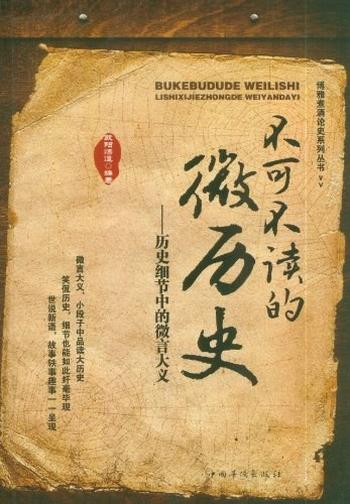 BUKEBUDUDE WEILISHI
LISHIXIJIEZHONGDE WEIYANDAYI
博雅煮酒论史系列丛书
不可不读的
微历史
——历史细节中的微言大义
微言大义,小段子中品读大历史
笑侃历史,细节也能如此纤毫毕现
世说新语,故事轶事趣事一一呈现
中国华侨出版社